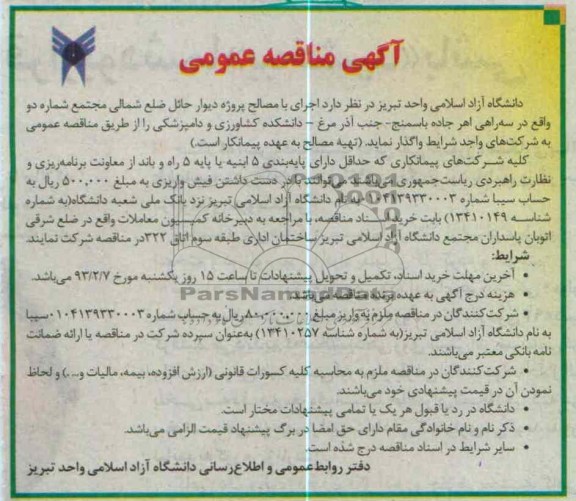 آگهی مناقصه عمومی
دانشگاه آزاد اسلامی واحد تبریز در نظر دارد اجرای با مصالح پروژه دیوار حائل ضلع شمالی مجتمع شماره دو
واقع در سه‌راهی اهر جاده باسمنج- جنب آذر مرغ – دانشکده کشاورزی و دامپزشکی را از طریق مناقصه عمومی
به شرکت‌های واجد شرایط واگذار نماید. (تهیه مصالح به عهده پیمانکار است.)
کلیه شرکت‌های پیمانکاری که حداقل دارای پایه‌بندی ۵ ابنیه یا پایه ۵ راه و باند از معاونت برنامه‌ریزی و
نظارت راهبردی ریاست‌جمهوری می‌باشند می‌توانند با در دست داشتن فیش واریزی به مبلغ ۵۰۰,۰۰۰ ریال به
حساب سیبا شماره ۰۱۰۴۱۳۹۳۳۰۰۰۳ به نام دانشگاه آزاد اسلامی تبریز نزد بانک ملی شعبه دانشگاه(به شماره
شناسه ۱۳۴۱۰۱۴۹) بابت خرید اسناد مناقصه، با مراجعه به دبیرخانه کمیسیون معاملات واقع در ضلع شرقی
اتوبان پاسداران مجتمع دانشگاه آزاد اسلامی تبریز ساختمان اداری طبقه سوم اتاق ۳۲۲ در مناقصه شرکت نمایند.
شرایط:
• آخرین مهلت خرید اسناد، تکمیل و تحویل پیشنهادات تا ساعت ۱۵ روز یکشنبه مورخ ۹۳/۲/۷ می‌باشد.
• هزینه درج آگهی به عهده برنده مناقصه می‌باشد.
• شرکت‌کنندگان در مناقصه ملزم به واریز مبلغ ۸۰,۰۰۰,۰۰۰ ریال به حساب شماره ۰۱۰۴۱۳۹۳۳۰۰۰۳ سیبا
به نام دانشگاه آزاد اسلامی تبریز(به شماره شناسه ۱۳۴۱۰۲۵۷) به‌عنوان سپرده شرکت در مناقصه یا ارائه ضمانت
نامه بانکی معتبر می‌باشند.
• شرکت‌کنندگان در مناقصه ملزم به محاسبه کلیه کسورات قانونی (ارزش افزوده، بیمه، مالیات و...) و لحاظ
نمودن آن در قیمت پیشنهادی خود می‌باشند.
• دانشگاه در رد یا قبول هر یک یا تمامی پیشنهادات مختار است.
• ذکر نام و نام خانوادگی مقام دارای حق امضا در برگ پیشنهاد قیمت الزامی می‌باشد.
• سایر شرایط در اسناد مناقصه درج شده است.
دفتر روابط‌عمومی و اطلاع‌رسانی دانشگاه آزاد اسلامی واحد تبریز
ParsNamadData